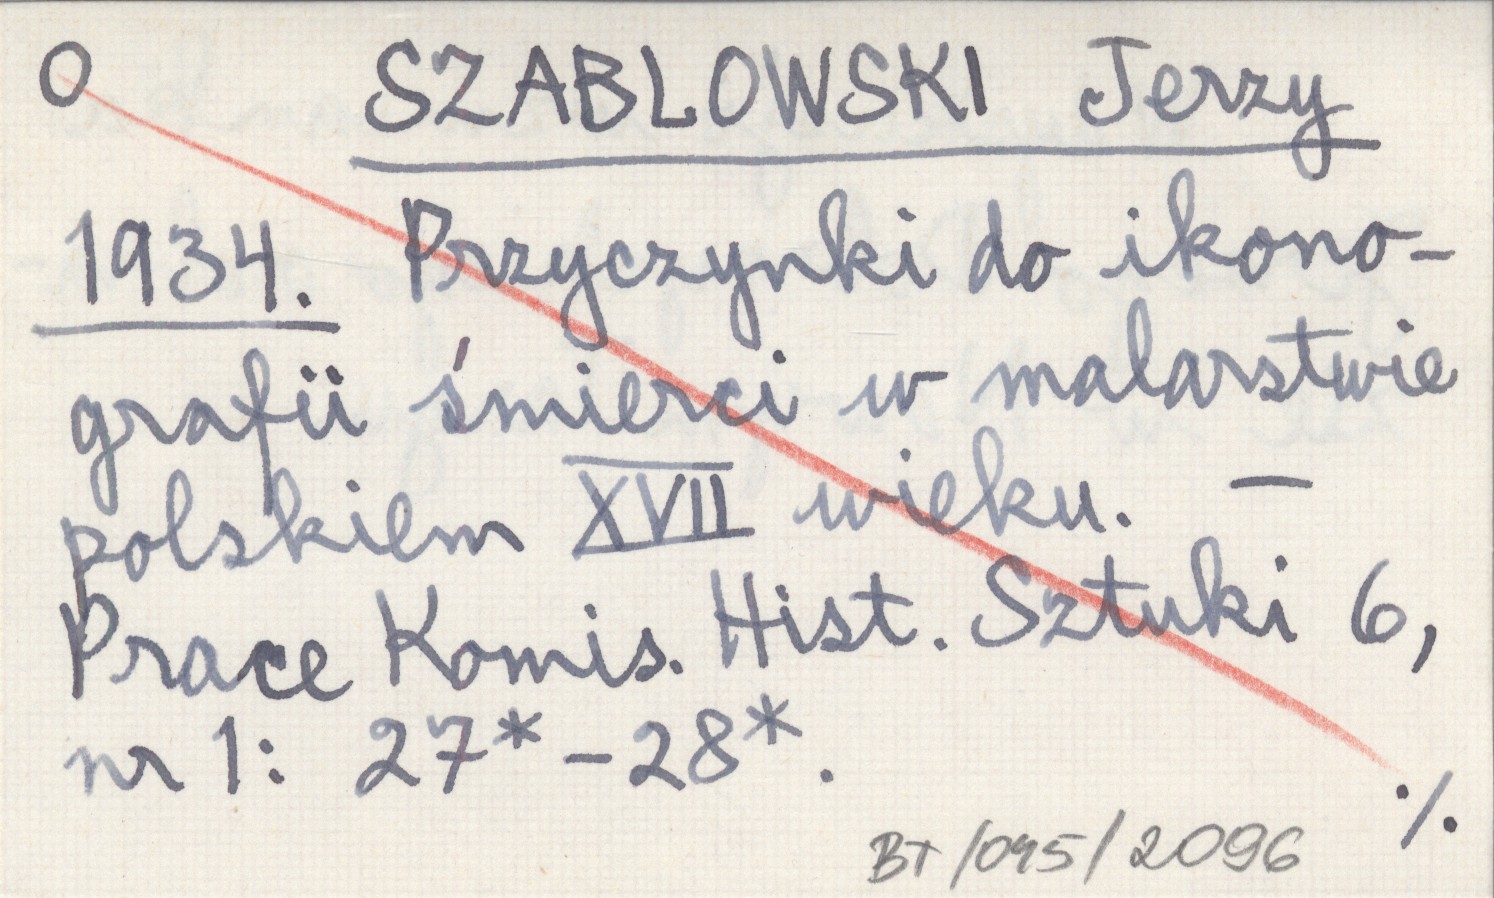 O SZABLOWSKI Jerzy
1934. Przyczynki do ikono-
grafii śmierci w malarstwie
polskiem XVII wieku. —
Prace Komis. Hist. Sztuki 6,
nr 1: 27*-28*.
./.
BT/095/2096